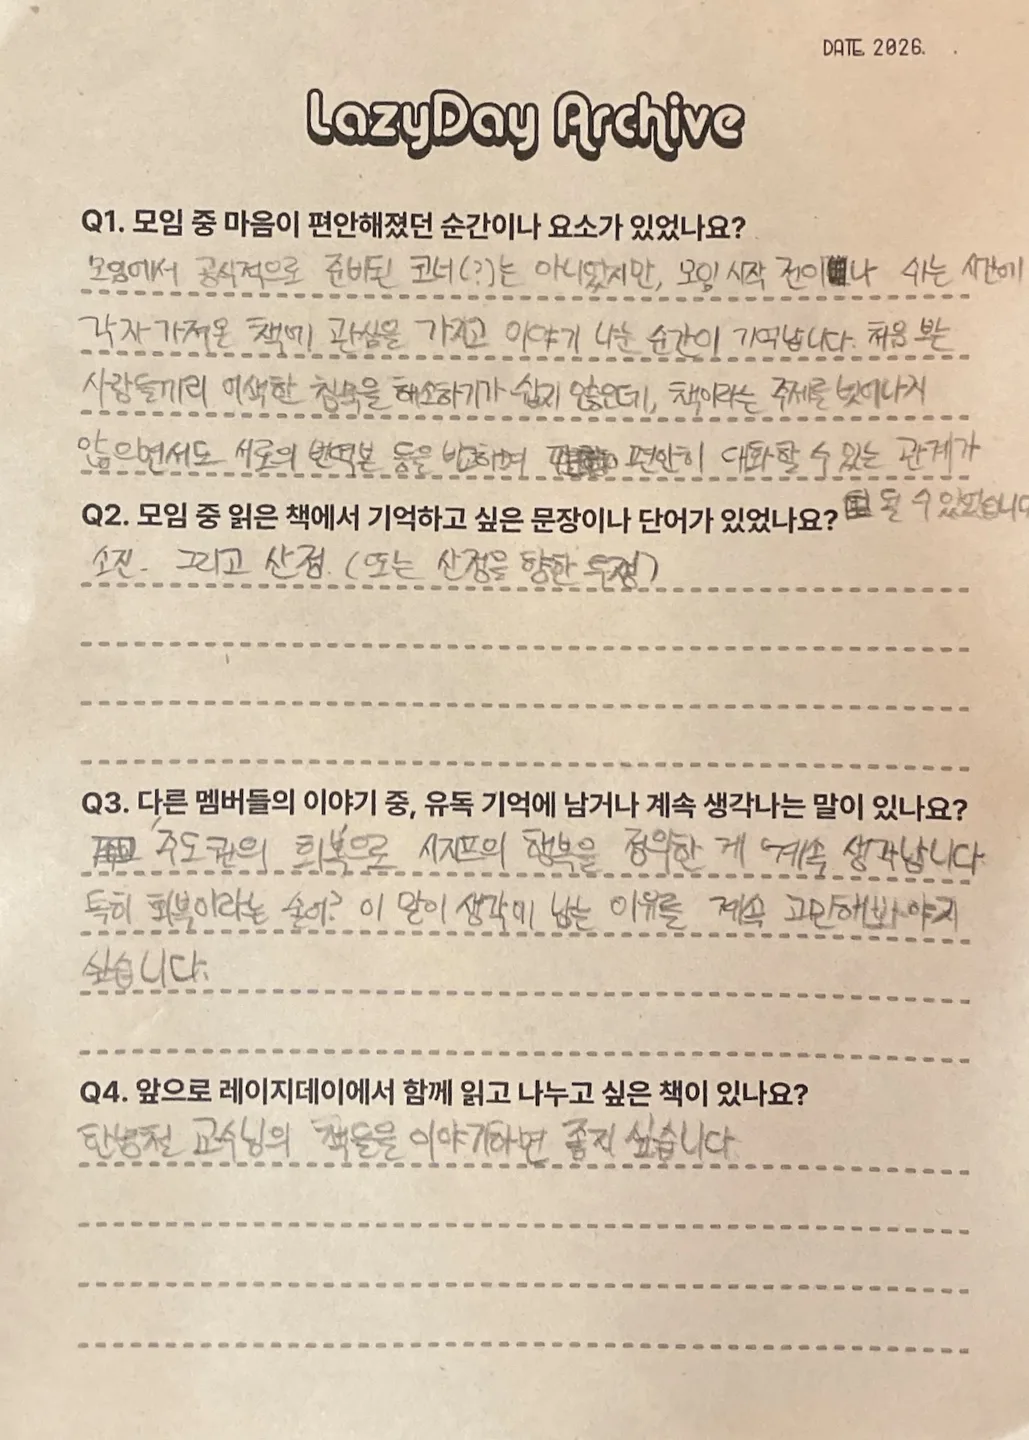 DATE. 2026. .
LazyDay Archive
Q1. 모임 중 마음이 편안해졌던 순간이나 요소가 있었나요?
모임에서 공식적으로 준비된 코너(?)는 아니었지만, 모임 시작 전이나 쉬는 시간에
각자 가져온 책에 관심을 가지고 이야기 나눈 순간이 기억납니다. 처음 보는
사람들끼리 어색한 침묵을 해소하기가 쉽지 않은데, 책이라는 주제를 벗어나지
않으면서도 서로의 번역본 등을 비교하며 편안히 대화할 수 있는 관계가
될 수 있었습니다
Q2. 모임 중 읽은 책에서 기억하고 싶은 문장이나 단어가 있었나요?
소진. 그리고 산정. (또는 산정을 향한 투쟁)
Q3. 다른 멤버들의 이야기 중, 유독 기억에 남거나 계속 생각나는 말이 있나요?
주도권의 회복으로 시지프의 행복을 정의한 게 계속 생각납니다
특히 회복이라는 술어? 이 말이 생각에 남는 이유를 계속 고민해봐야지
싶습니다.
Q4. 앞으로 레이지데이에서 함께 읽고 나누고 싶은 책이 있나요?
한병철 교수님의 책들을 이야기하면 좋지 싶습니다